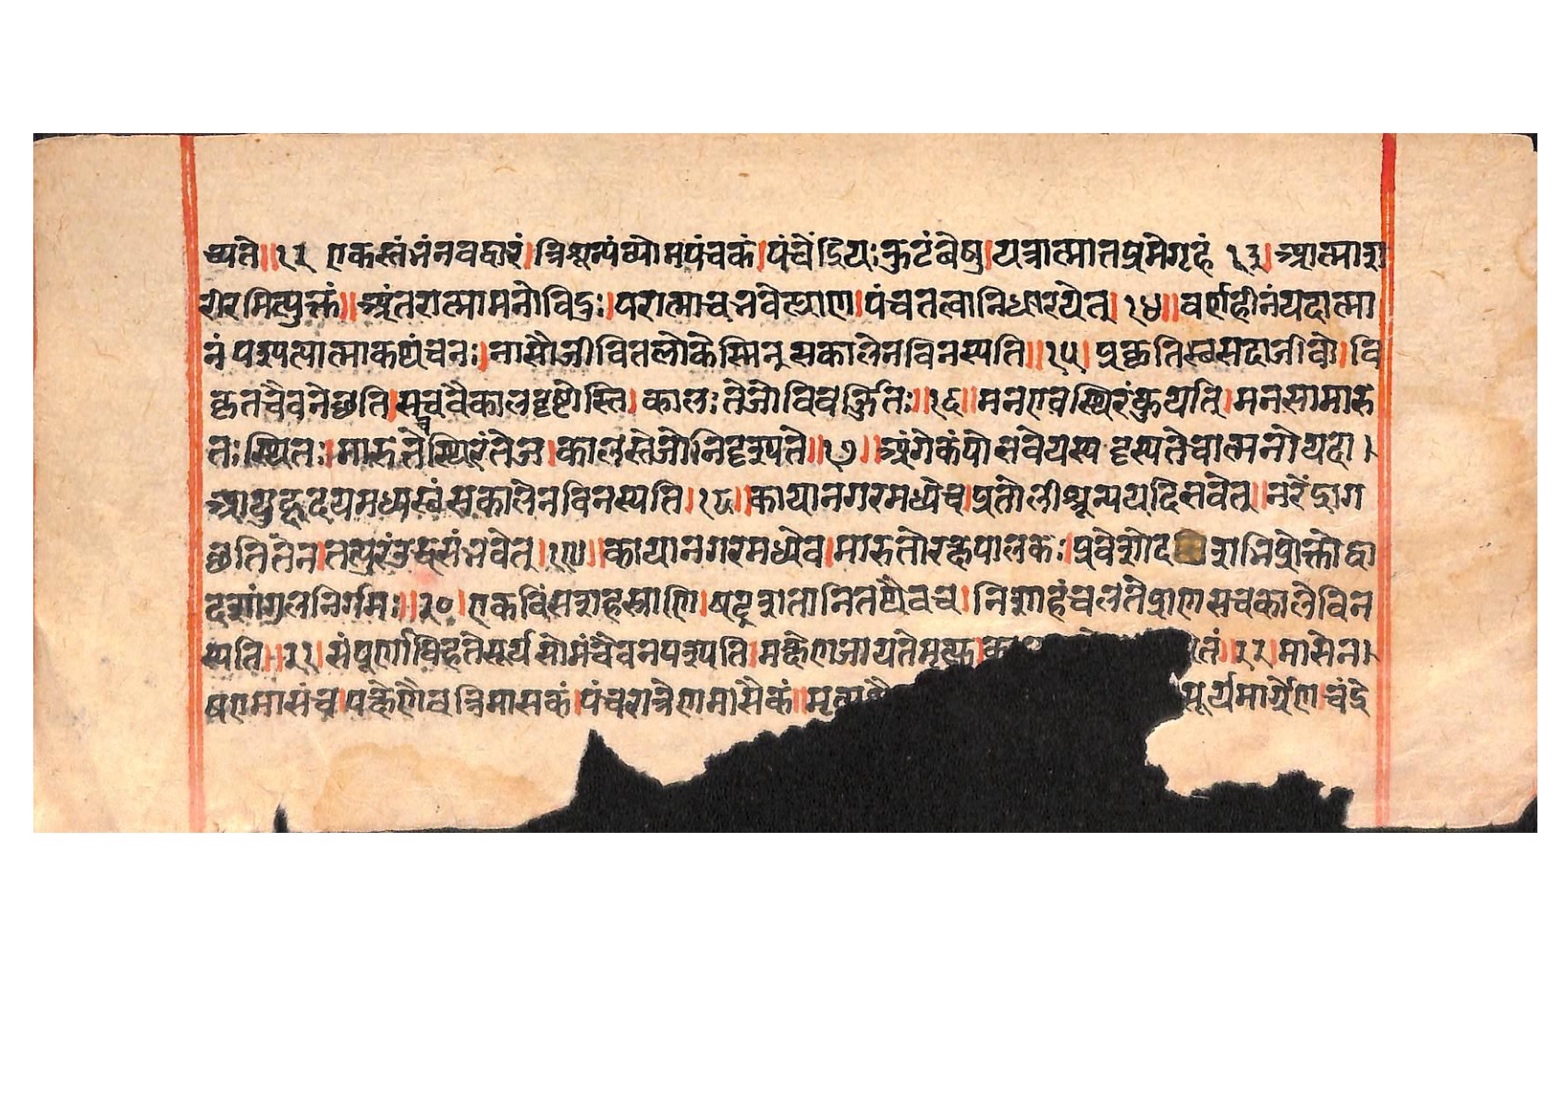 च्यते॥१२ एकस्तंभंनवद्वारं।त्रिशून्यंव्योमपंचकं।पंचेंद्रियःकुटंबेषु।यत्रात्मातप्रमेगृहं १३।आत्माश
रीरमित्युक्तं॥अंतरात्मामनोविदुः।परात्माचभवेत्प्राण।पंचतत्वानिधारयेत्।१४॥वर्णहीनंयदात्मा
नं पश्यत्यात्माकथंचनः।नासौजीवितलोकेस्मिन्सकालेनविनस्यति॥१५।प्रकृतिस्वसदाजीवो।वि
कृतचैवनेछति।सचवैकालदृष्टोस्ति।कालःतेजोविवर्जितः॥१६॥मनएवस्थिरंकुर्यात्।मनसामारु
तःस्थितः।मारुतेस्थिरंतेज।कालस्तेजोनिदृश्यते॥१७॥अंगेकंपोभवेयस्य दृस्यतेचात्मनोयदा।
आयुहृदयमध्यस्वंसकालेनविनस्यति।१८॥कायानगरमध्येच।प्रतोलीशून्ययदिभवेत्॥नरेंद्राग
छतितेन।तत्पुरंउद्वसंभवेत्।१९॥कायानगरमध्येच।मारुतोरक्षपालकः।प्रवेशेद शभिप्रोक्तोद्वा
दशांगुलनिर्गमः॥२०।एकविंसशहस्राणि।षट्शतानितथैवच।निशाहंचलतेप्राणसचकालेविन
स्यति॥२१।संपूर्णाविहतेसूर्यसोमंचैवनपश्यति।पक्षेणजायतेमृत्यु।का तं॥२२।मासेन।
षणमासंच।पक्षेणैवत्रिमासकं।पंचरात्रेणमासैकं॥मृत्य सूर्यमार्गेण।चंद्रे